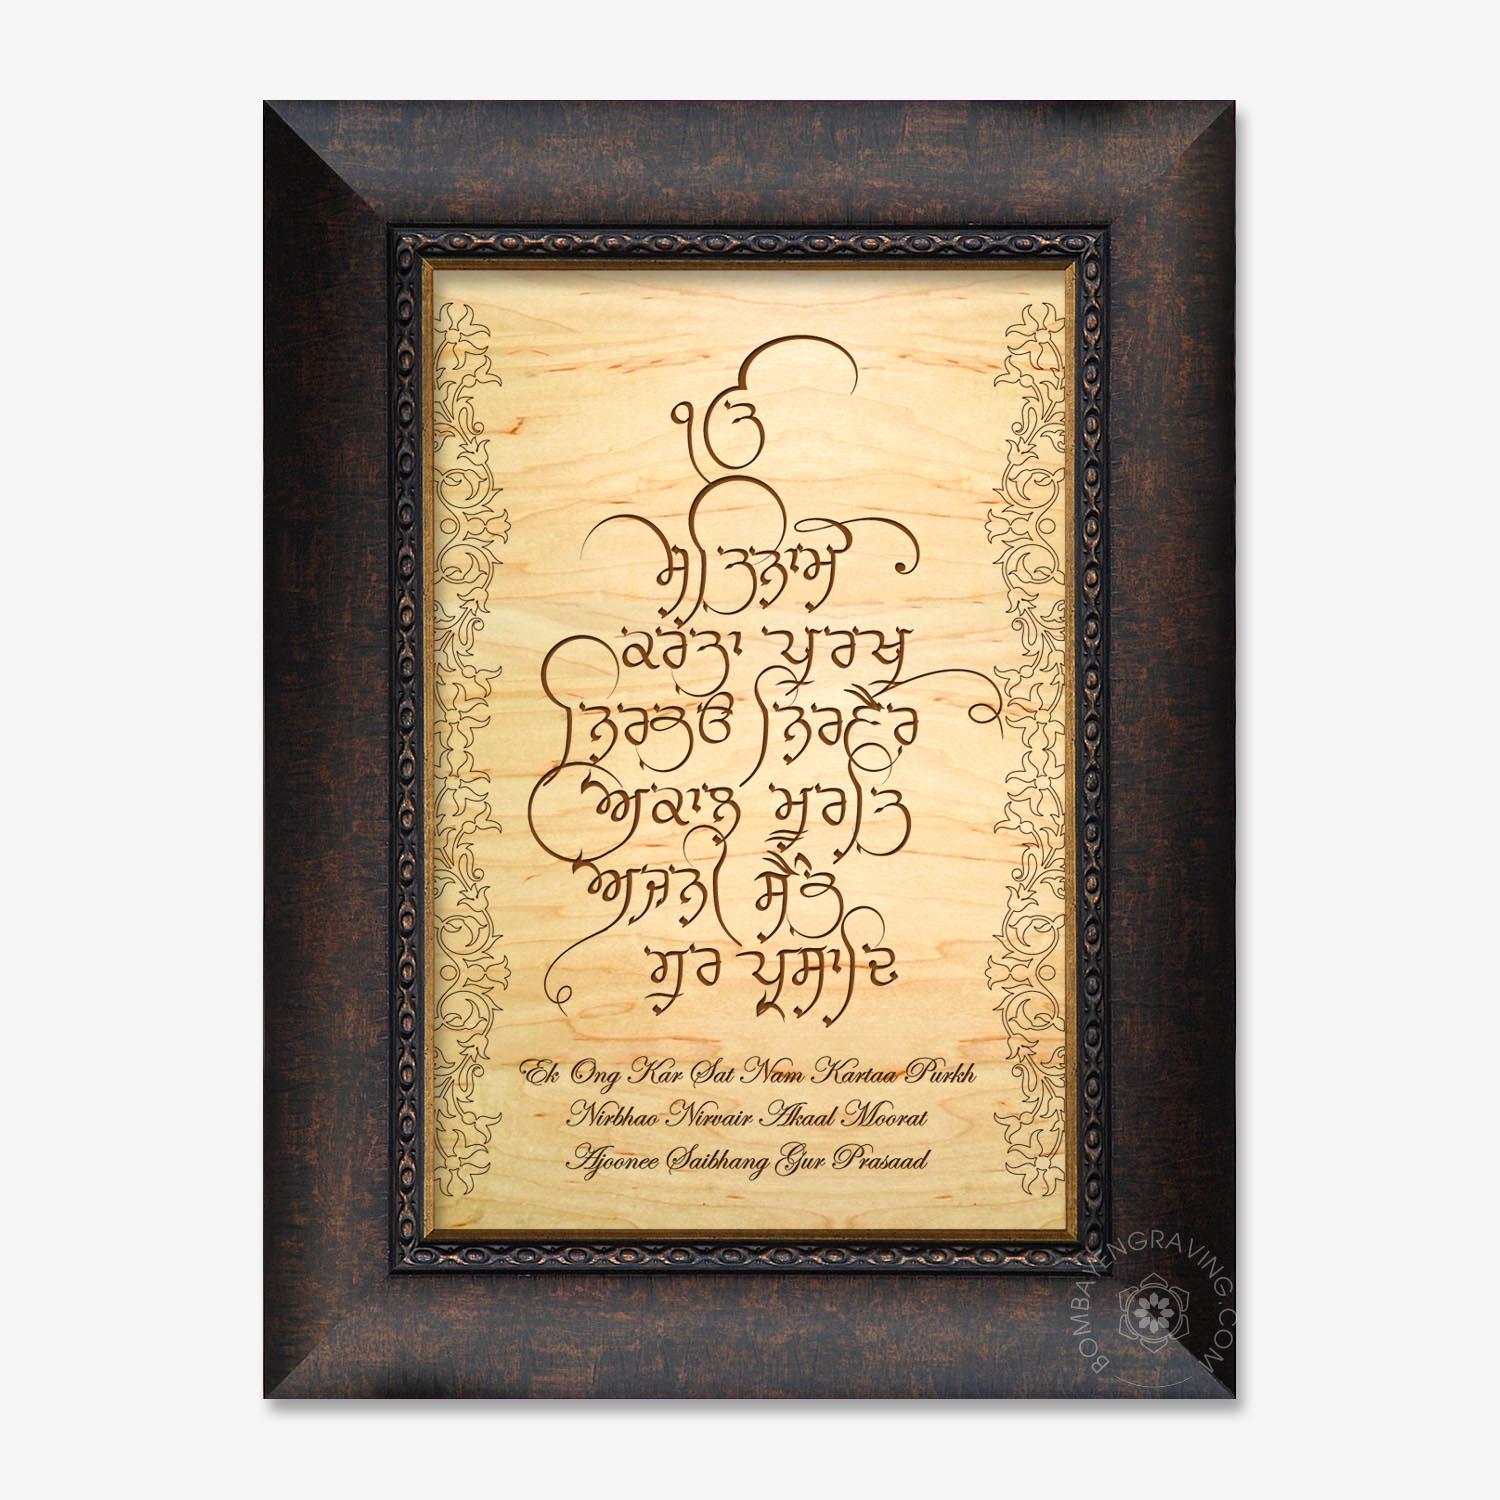 ੴ
ਸਤਿਨਾਮੁ
ਕਰਤਾ ਪੁਰਖੁ
ਨਿਰਭਉ ਨਿਰਵੈਰੁ
ਅਕਾਲ ਮੂਰਤਿ
ਅਜੂਨੀ ਸੈਭੰ
ਗੁਰ ਪ੍ਰਸਾਦਿ
Ek Ong Kar Sat Nam Kartaa Purkh
Nirbhao Nirvair Akaal Moorat
Ajoonee Saibhang Gur Prasaad
BOMBAYENGRAVING.COM